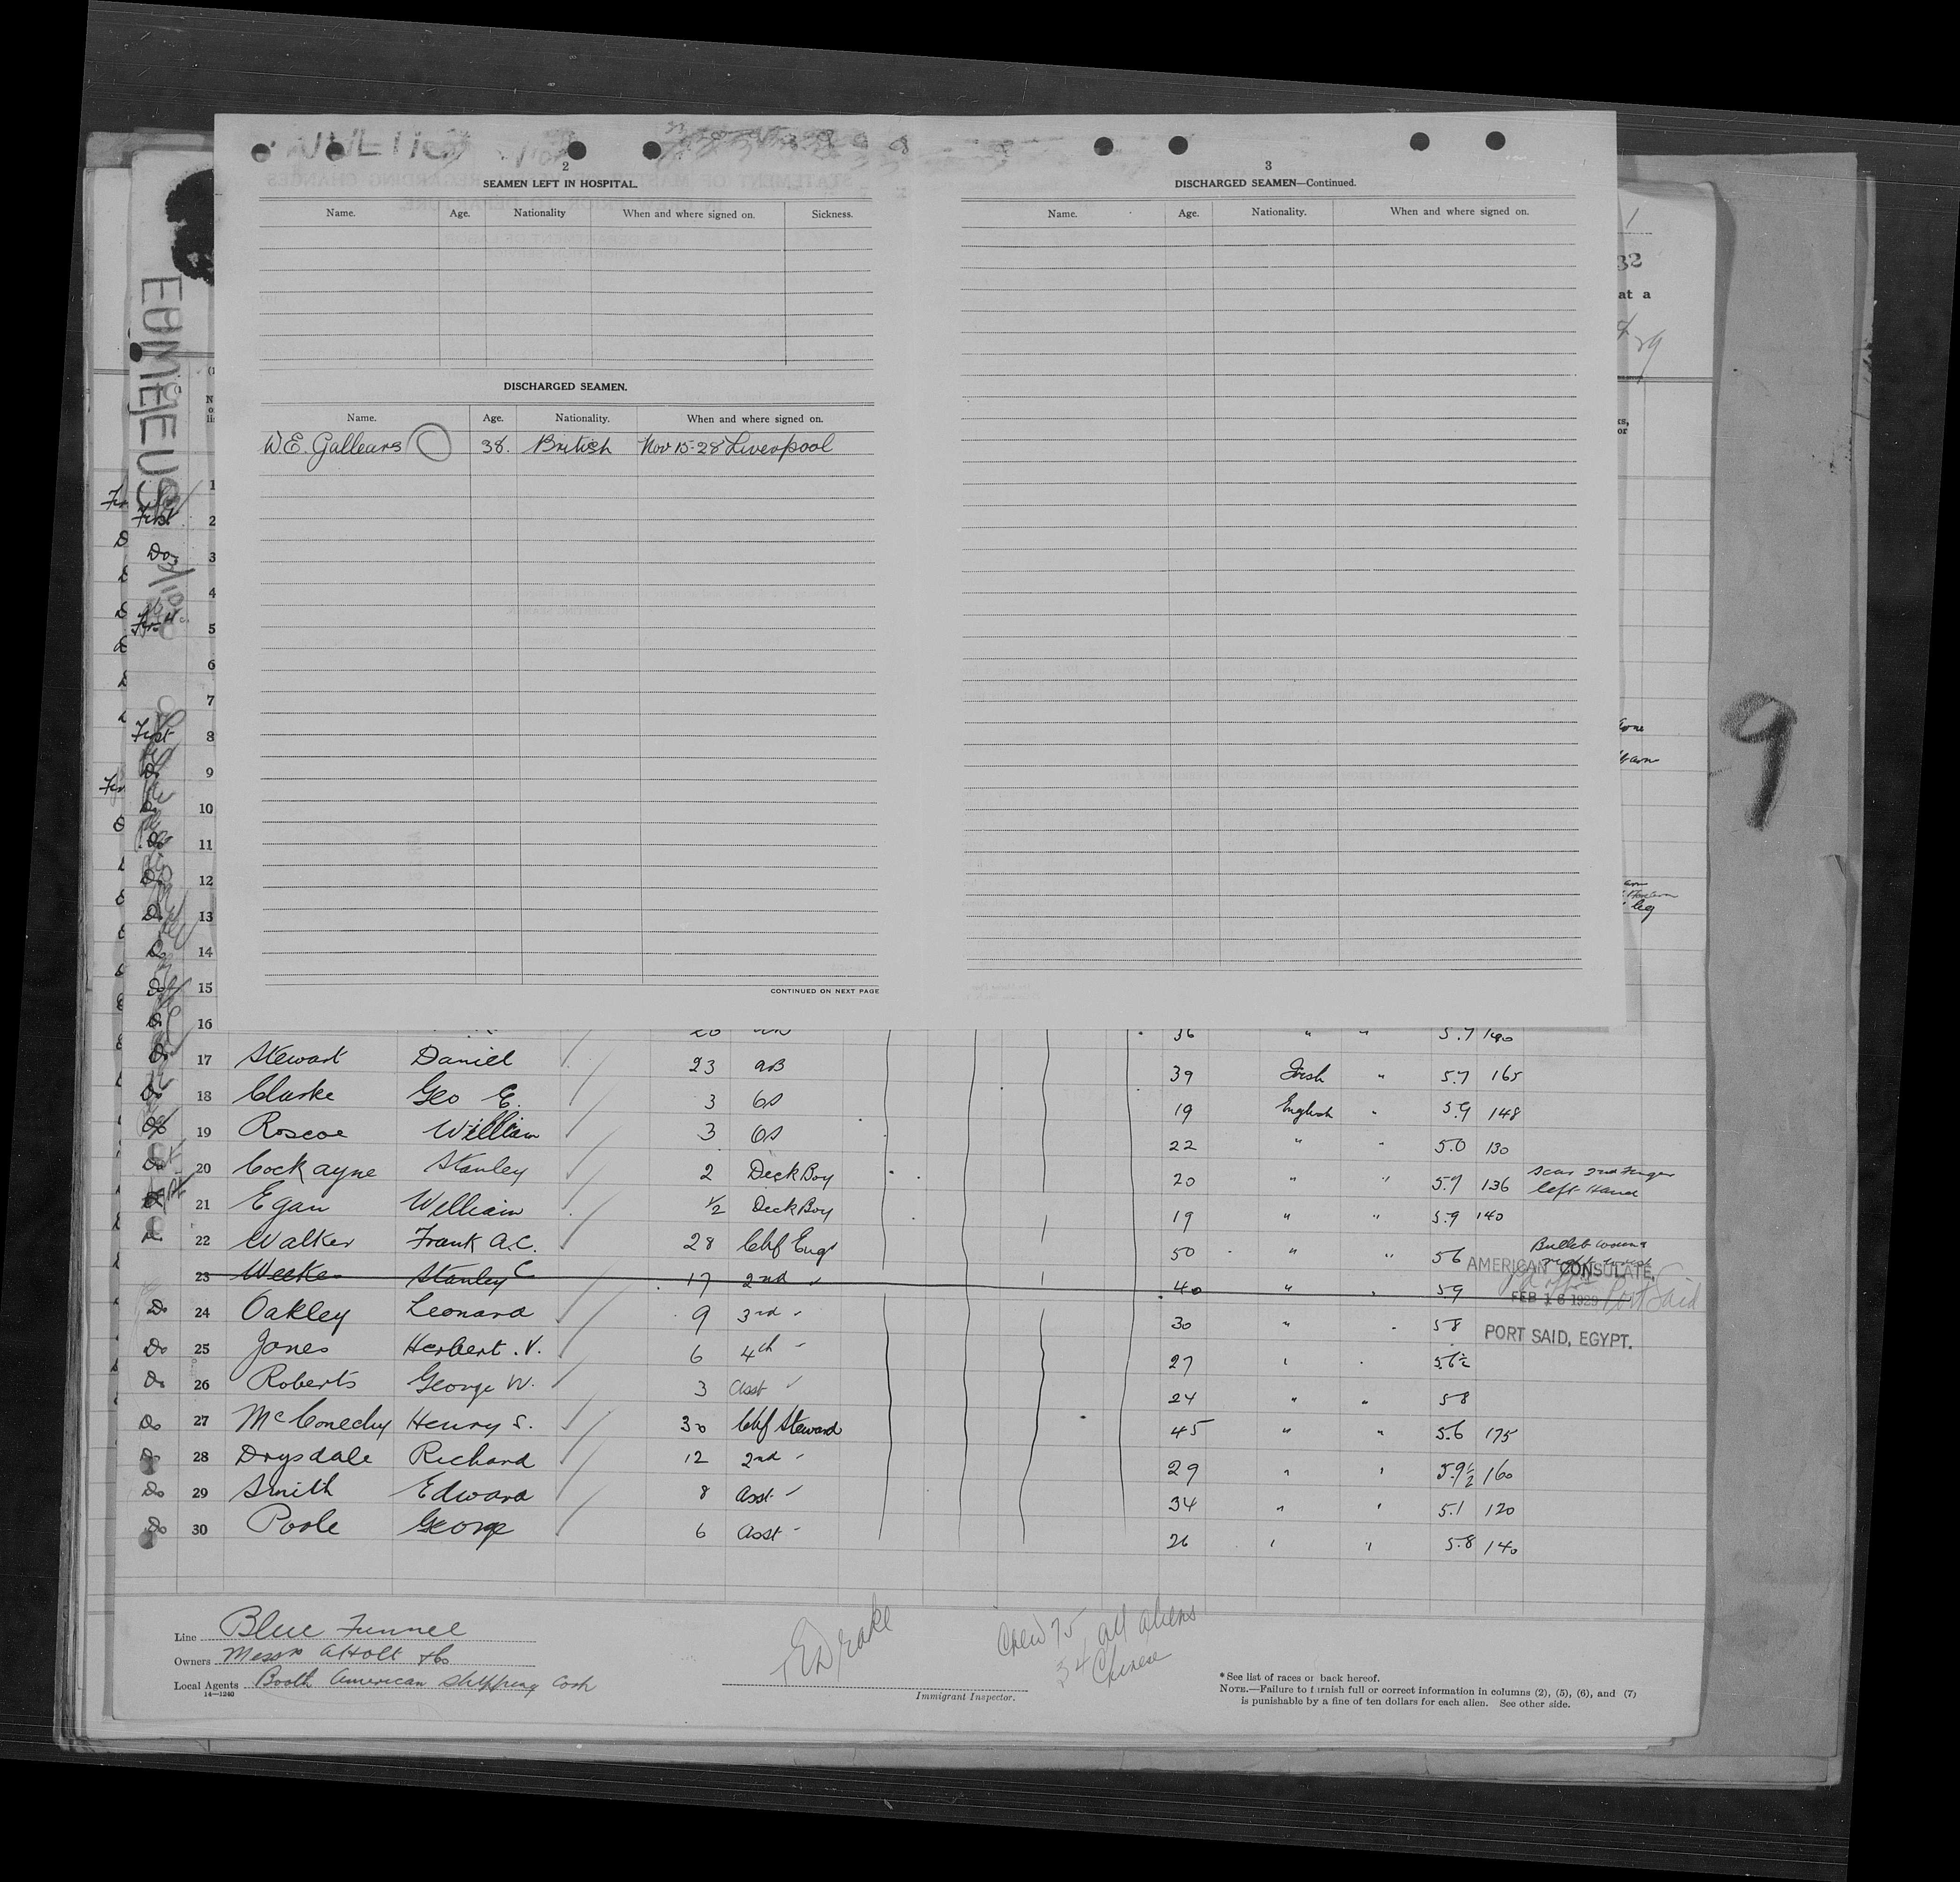 2
SEAMEN LEFT IN HOSPITAL.
Name. Age. Nationality When and where signed on. Sickness.
DISCHARGED SEAMEN.
Name. Age. Nationality. When and where signed on.
W.E. Gallears 38. British Nov 15-28 Liverpool
CONTINUED ON NEXT PAGE
3
DISCHARGED SEAMEN—Continued.
Name. Age. Nationality. When and where signed on.
32
at a
EUMEUS
First
Do
1
2
3
4
5
6
7
First 8
Do 9
10
Do 11
Do 12
Do 13
Do 14
Do 15
Do 16 36 " " 5.7 190
Do 17 Stewart Daniel 23 AB 39 Irish " 5.7 165
Do 18 Clarke Geo E. 3 OS 19 English " 5.9 148
Do 19 Roscoe William 3 OS 22 " " 5.0 130
Do 20 Cockayne Stanley 2 Deck Boy 20 " " 5.7 136 Scar 2nd Finger left Hand
21 Egan William 1/2 Deck Boy 19 " " 5.9 140
Do 22 Walker Frank A.C. 28 Chf Engr 50 " " 5 6 Bullet wound
23 Weekes Stanley C 17 2nd " 40 " " 5 9
AMERICAN CONSULATE,
FEB 16 1929 Port Said
PORT SAID, EGYPT.
Do 24 Oakley Leonard 9 3rd " 30 " " 5 8
Do 25 Jones Herbert .V. 6 4th " 27 " " 5.6½
Do 26 Roberts George W. 3 Asst " 24 " " 5 8
Do 27 McConechy Henry S. 30 Chf Steward 45 " " 5.6 175
Do 28 Drysdale Richard 12 2nd " 29 " " 5.9½ 160
Do 29 Smith Edward 8 Asst " 34 " " 5.1 120
Do 30 Poole George 6 Asst " 26 " " 5.8 140
Line Blue Funnel
Owners Messrs A Holt & Co
Local Agents Booth American Shipping Corp
14—1240
E Drake
Immigrant Inspector.
Crew 75 all aliens
34 Chinese
*See list of races on back hereof.
NOTE.—Failure to furnish full or correct information in columns (2), (5), (6), and (7)
is punishable by a fine of ten dollars for each alien. See other side.
9